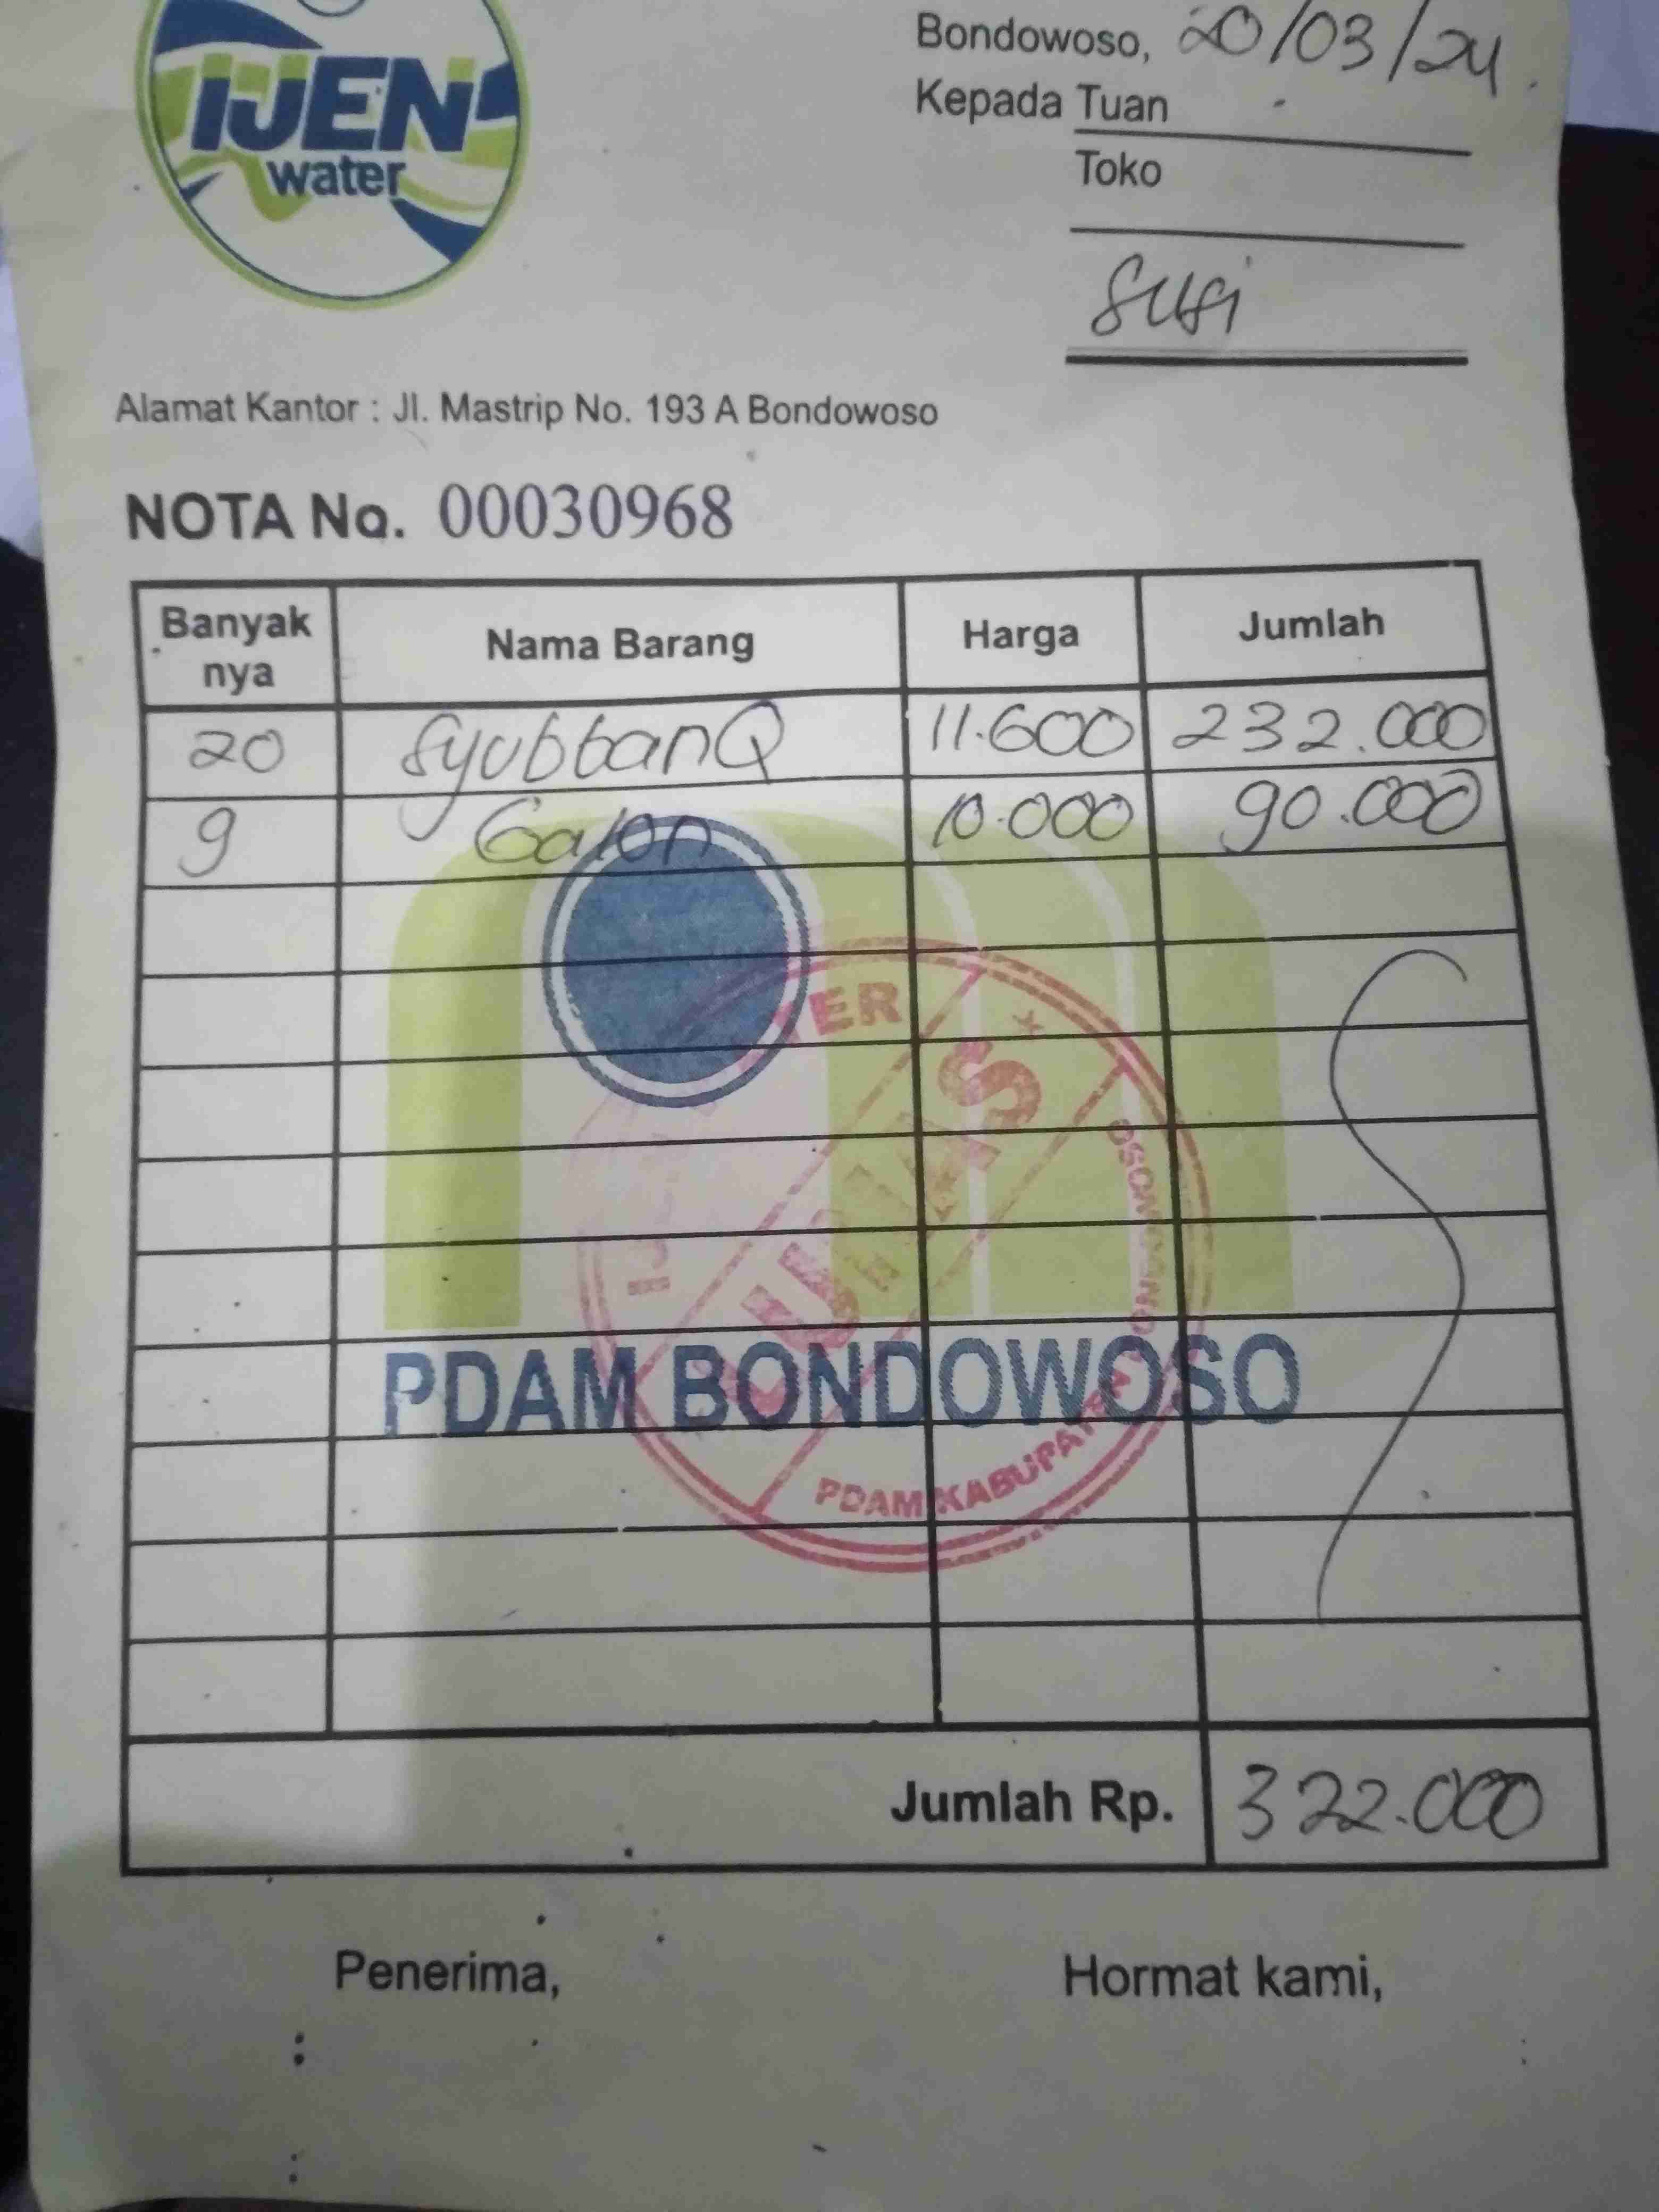 IJEN
water
Bondowoso, 20/03/24.
Kepada Tuan
Toko
Susi
Alamat Kantor : Jl. Mastrip No. 193 A Bondowoso
NOTA No. 00030968
Banyak nya Nama Barang Harga Jumlah
20 SyubbanQ 11.600 232.000
9 Galon 10.000 90.000
LUNAS
PDAM BONDOWOSO
PDAM KABUPATEN BONDOWOSO
Jumlah Rp. 322.000
Penerima, Hormat kami,